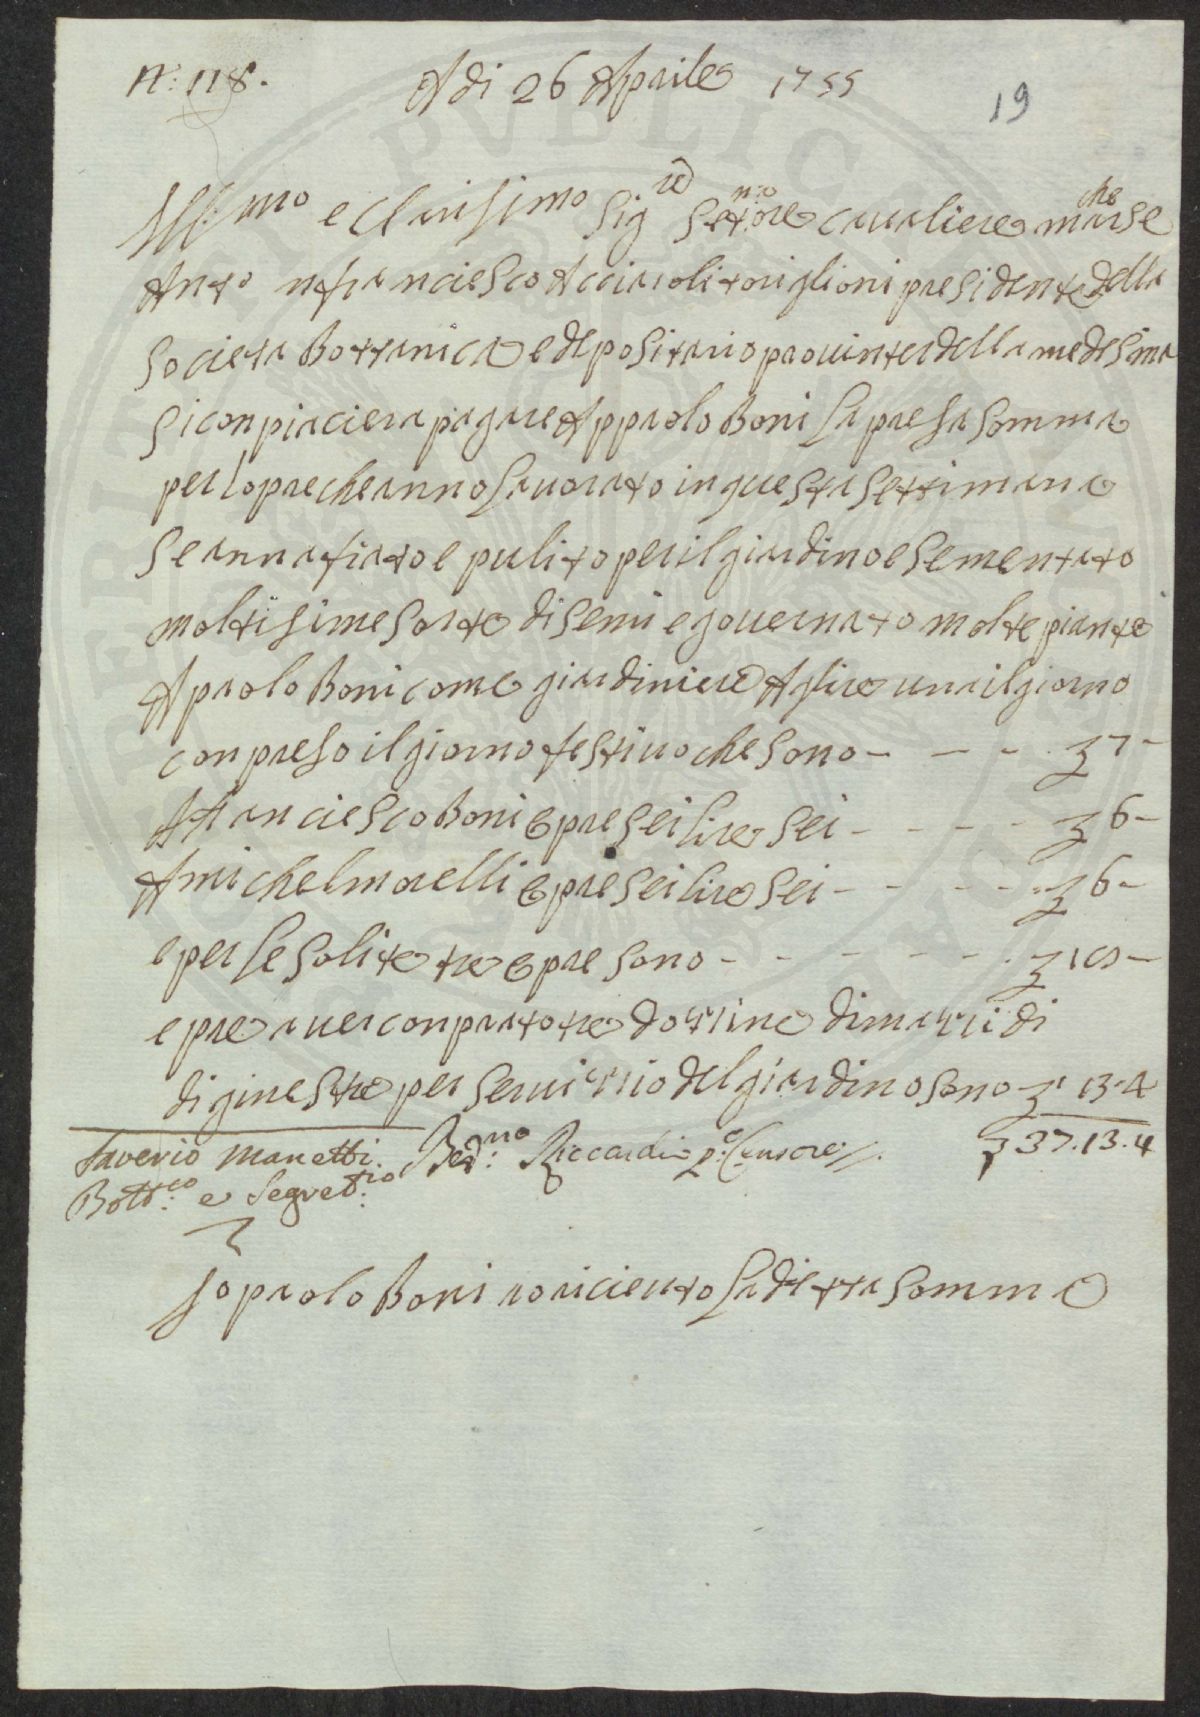 N.° 118. Adi 26 Aprile 1755 19
Ill:mo e Clarisimo Sig re Senore cavaliere marche se
Anto nfrranciesco Acciaioli toriglioni presidente della
Societa Bottanica e depositario provinter della medesima
si conpiaciera pagare Appaolo Boni la presa somma
per lopre che anno lavorato in questa settimana
se annafiato e pulito per il giardino e sementato
moltisime sorte di semi e governato molte piante
A paolo Boni come giardiniere A lire una il giorno
conpreso il giorno festivo che sono - - - - 7 -
A franciesco Boni opre sei lire sei - - - - 6 -
A michel morelli opre sei lire sei - - - - 6 -
e per le solite tre opre sono - - - - - -
e pre aver conprato tre dozzine di mazzi di
di ginestre per servizio del giardino sono 13-4
Saverio Manetti. Bern:no Riccardi p:o Censore 37.13.4
Bott:co e Segret:rio
Jo paolo Boni o riciento la detta somma